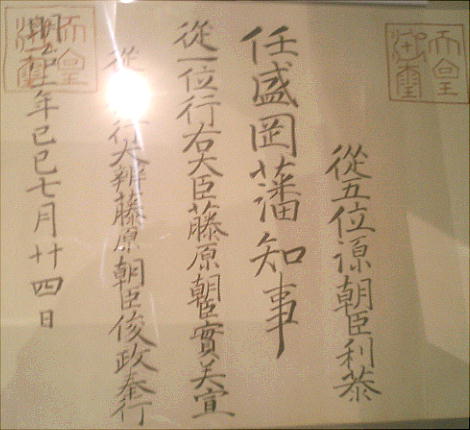 天皇
御璽
從五位源朝臣利恭
任盛岡藩知事
從一位行右大臣藤原朝臣實美宣
從行大辨藤原朝臣俊政奉行
天皇
御璽
明治二年己巳七月廿四日